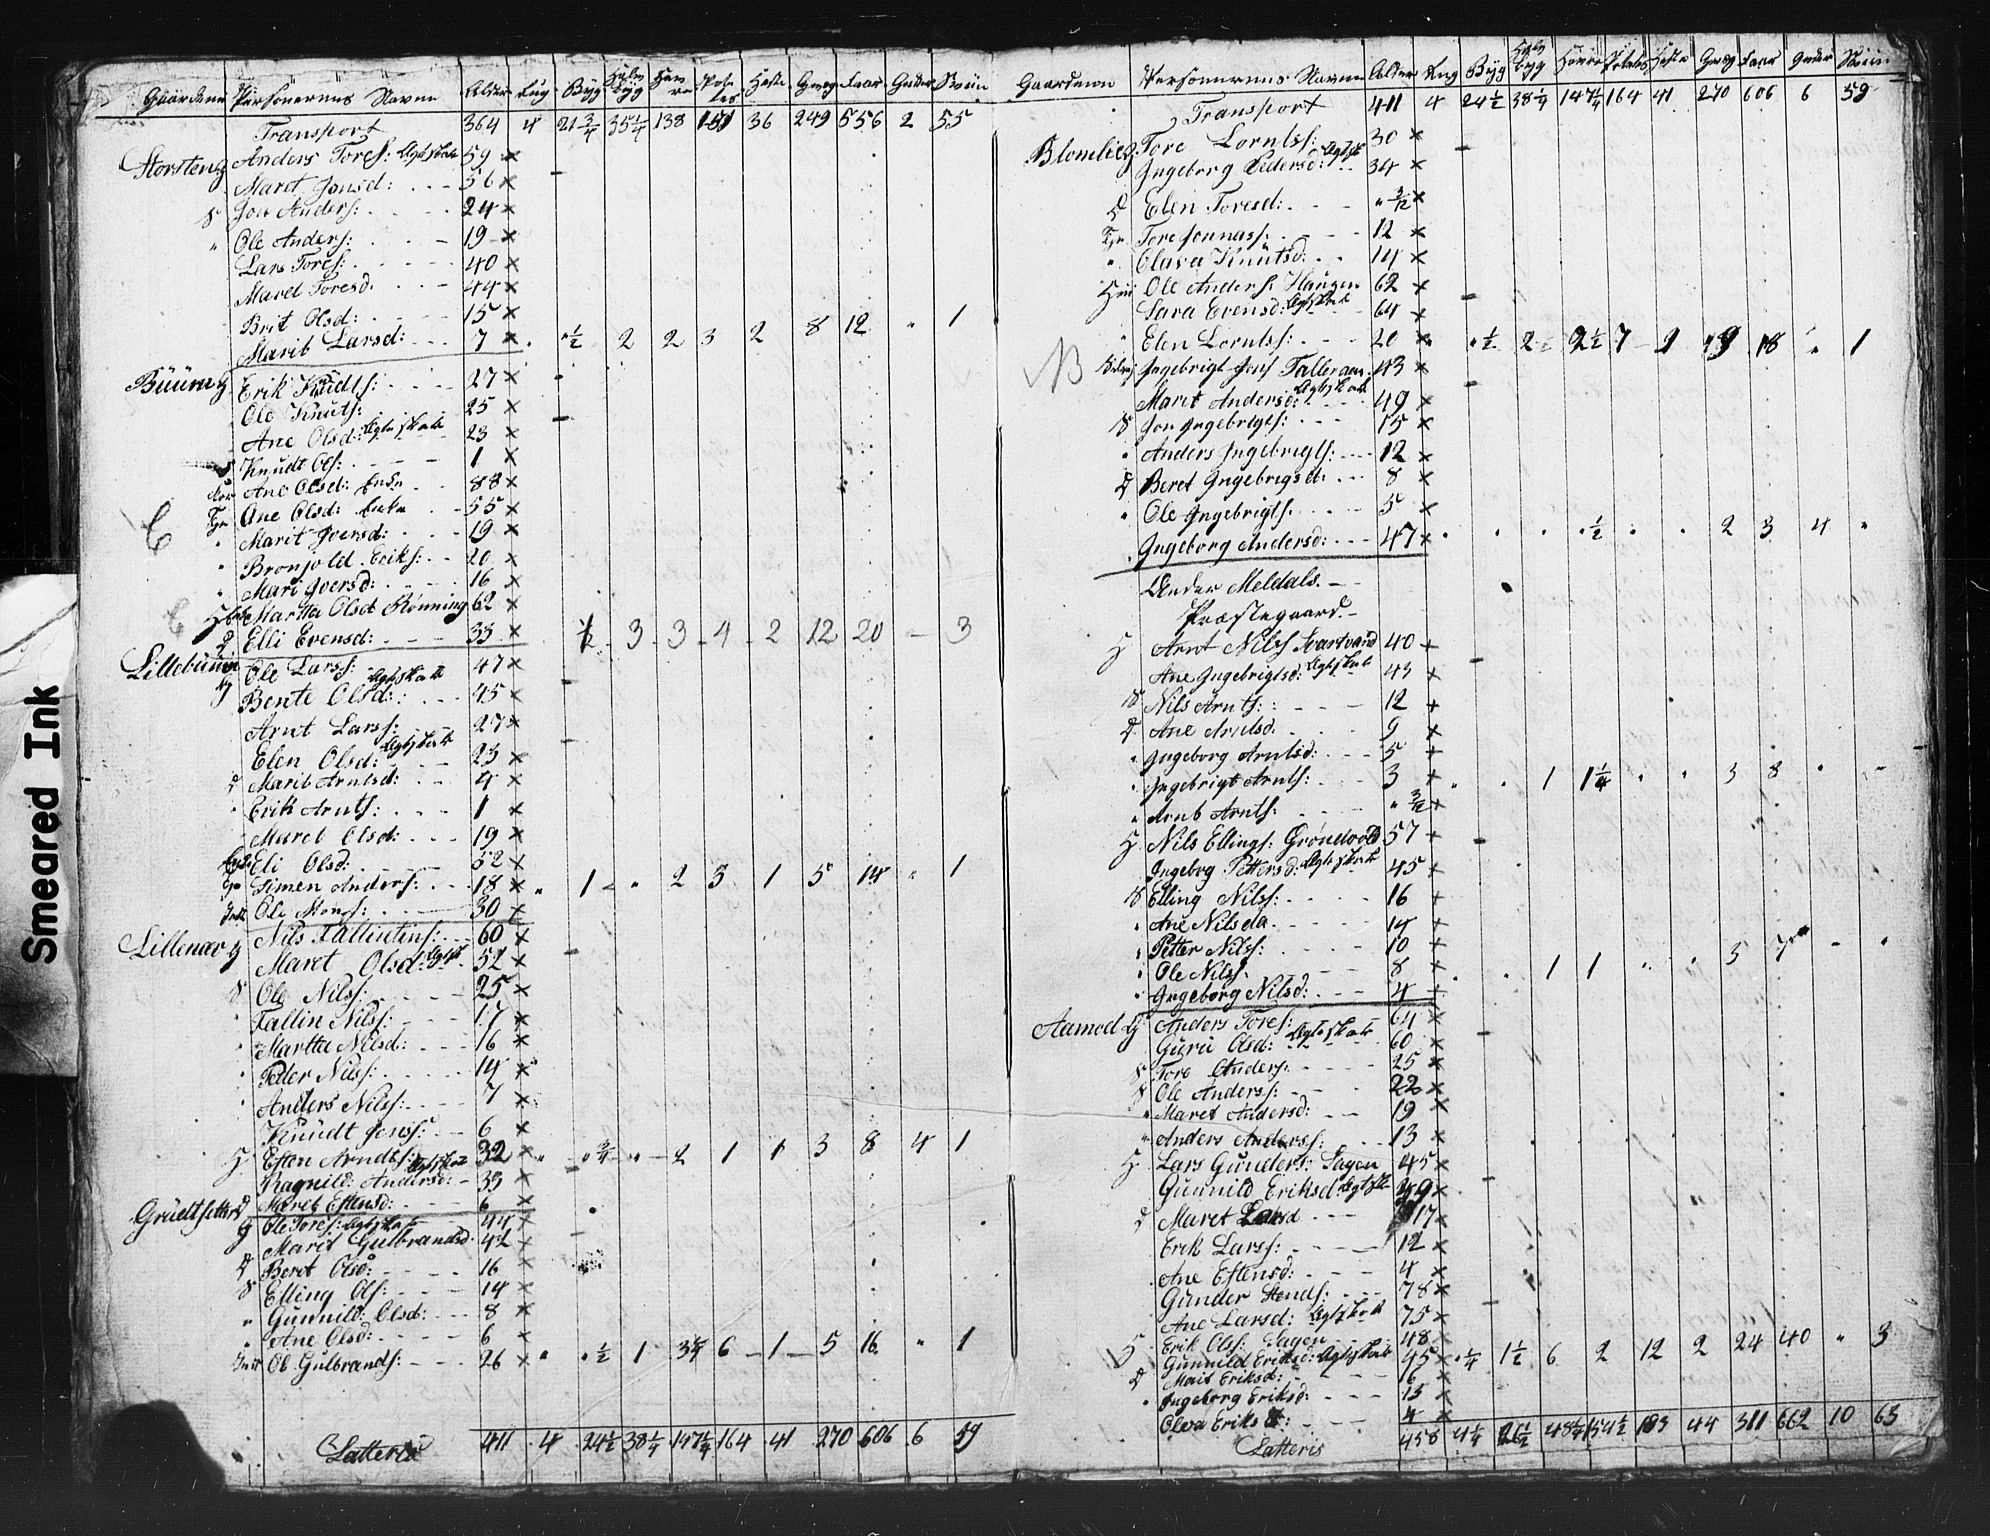 Smeared Ink
Gaardene Personernes Navne Alder Rug Byg Havre Heste Faar Sviin
Transport 364 4 21 3/4 35 1/4 138 151 36 249 556 2 55
Storsteng Anders Tores: 59 ×
Maret Jonsd: 56 ×
S Jon Anders: 24 ×
" Ole Anders: 19 ×
Lars Tores: 40 ×
Maret Toresd. 44 ×
Brit Olsd: 15 ×
Marit Larsd: 7 × " 1/2 2 2 3 2 8 12 " 1
Büüm g Erik Knudts: 27 ×
Ole Knuts: 25 ×
Ane Olsd: 23 ×
S Knudt Ols: 1 ×
Ane Olsd: Enke 88 ×
Ane Olsd: Enke 55 ×
" Marit Iversd: 19 ×
" Bronjold Eriks: 20 ×
" Mari Iversd: 16 ×
H Martha Olsd Rønning 62 ×
D Elli Evensd: 33 × 1/2 3 3 4 2 12 20 3
Lillebüüm g Ole Larss: 47 ×
Bente Olsd: 45 ×
Arnt Larss: 27 ×
Elen Olsd: 23 ×
D Marit Arntsd: 4 ×
" Erik Arnts: 1 ×
Maret Olsd: 19 ×
Eli Olsd: 52 ×
Simen Anders: 18 × " 1 " 2 5 1 5 14 " 1
Ole Mons: 30 ×
Lillemoe g Nils Tallintins: 60 ×
Maret Olsd: 52 ×
S Ole Nilss: 25 ×
" Tallin Nilss: 17 ×
" Martha Nilsd: 16 ×
" Peder Nilss: 14 ×
" Anders Nilss: 7 ×
Knudt Jenss: 6 ×
H Esten Arndts: 32 × " " 3/4 " 2 1 1 3 8 4 1
Ragnild Andersd: 35 ×
D Maret Estensd: 6 ×
g Ole Tores: 44 ×
Marit Gulbrandsd. 42 ×
D Beret Olsd: 16 ×
S Elling Ols: 14 ×
" Gunnild: Olsd: 8 ×
" Ane Olsd: 6 ×
Ol Gulbrands: 26 × " " 1/2 1 3 1/4 6 1 5 16 " 1
Latteris 411 4 24 1/2 38 1/4 147 1/4 164 41 270 606 6 59
Gaardenen Personernes Navne Alder Rug Byg Havre Heste Faar Sviin
Transport 411 4 24 1/2 38 1/4 147 1/4 164 41 270 606 6 59
Blomlie g. Tore Lorntss: 30 ×
Ingeborg Pedersd: 34 ×
D Elen Toresd: " 3/12 ×
Tore Jonnass: 12 ×
" Olava Knutsd: 14 ×
Ole Anders: Haugen 62 ×
Sara Evensd: 64 ×
Elen Lorntss: 20 × " 1/2 2 2 1/2 7 2 19 18 " 1
NB Ingebrigt Jens Talleraas: 43 ×
Marit Andersd: 49 ×
S Jon Ingebrigts: 15 ×
" Anders Ingebrigts: 12 ×
D Beret Ingebrigsd: 8 ×
" Ole Ingebrigts. 5 ×
Ingeborg Andersd: 47 × " " " " 1/2 " " 2 3 4 "
Under Meldals
Præstegaard
H Arnt Nils Svartvand 40 +
Ane Ingebrigtsd: 43 ×
S Nils Arnts: 12 +
D Ane Arntsd. 9 ×
" Ingeborg Arntsd: 5 +
" Ingebrigt Arnts: 3 × " " 1 1 1/4 " " 3 8 "
" Arnt Arnts: " 3/12 ×
H Nils Ellings: Grøndvold 57 +
Ingebrg Pettersd: 45 +
S Elling Nilss: 16 +
" Ane Nilsda. 14 +
" Petter Nilss: 10 +
" Ole Nilss. 8 + " " 1 1 " " 5 7 " "
" Ingeborg Nilsd: 4 +
Aamod g Anders Tores: 64 ×
Guru Olsd: 60 ×
S Tore Anders: 25 ×
S Ole Anderss: 22 ×
" Maret Andersd: 19 ×
" Anders Anderss: 13 ×
H Lars Gunders: Hagen 45 ×
Gunnild Eriksd 49 ×
D Maret Larsd 17 ×
Erik Larss: 12 ×
Ane Estensd: 4 ×
Gunder 78 ×
Ane Larsd: 75 ×
Erik Ols: Hagen 48 ×
Gunnild Eriksd: 45 × " 1/4 1 1/2 6 2 12 2 24 40 " 3
D Marit Eriksd: 16 ×
" Ingeborg Eriksd: 13 ×
Olava Eriksd: 4 ×
Latteris 458 4 1/4 26 1/2 48 1/4 154 1/2 193 44 311 662 10 63